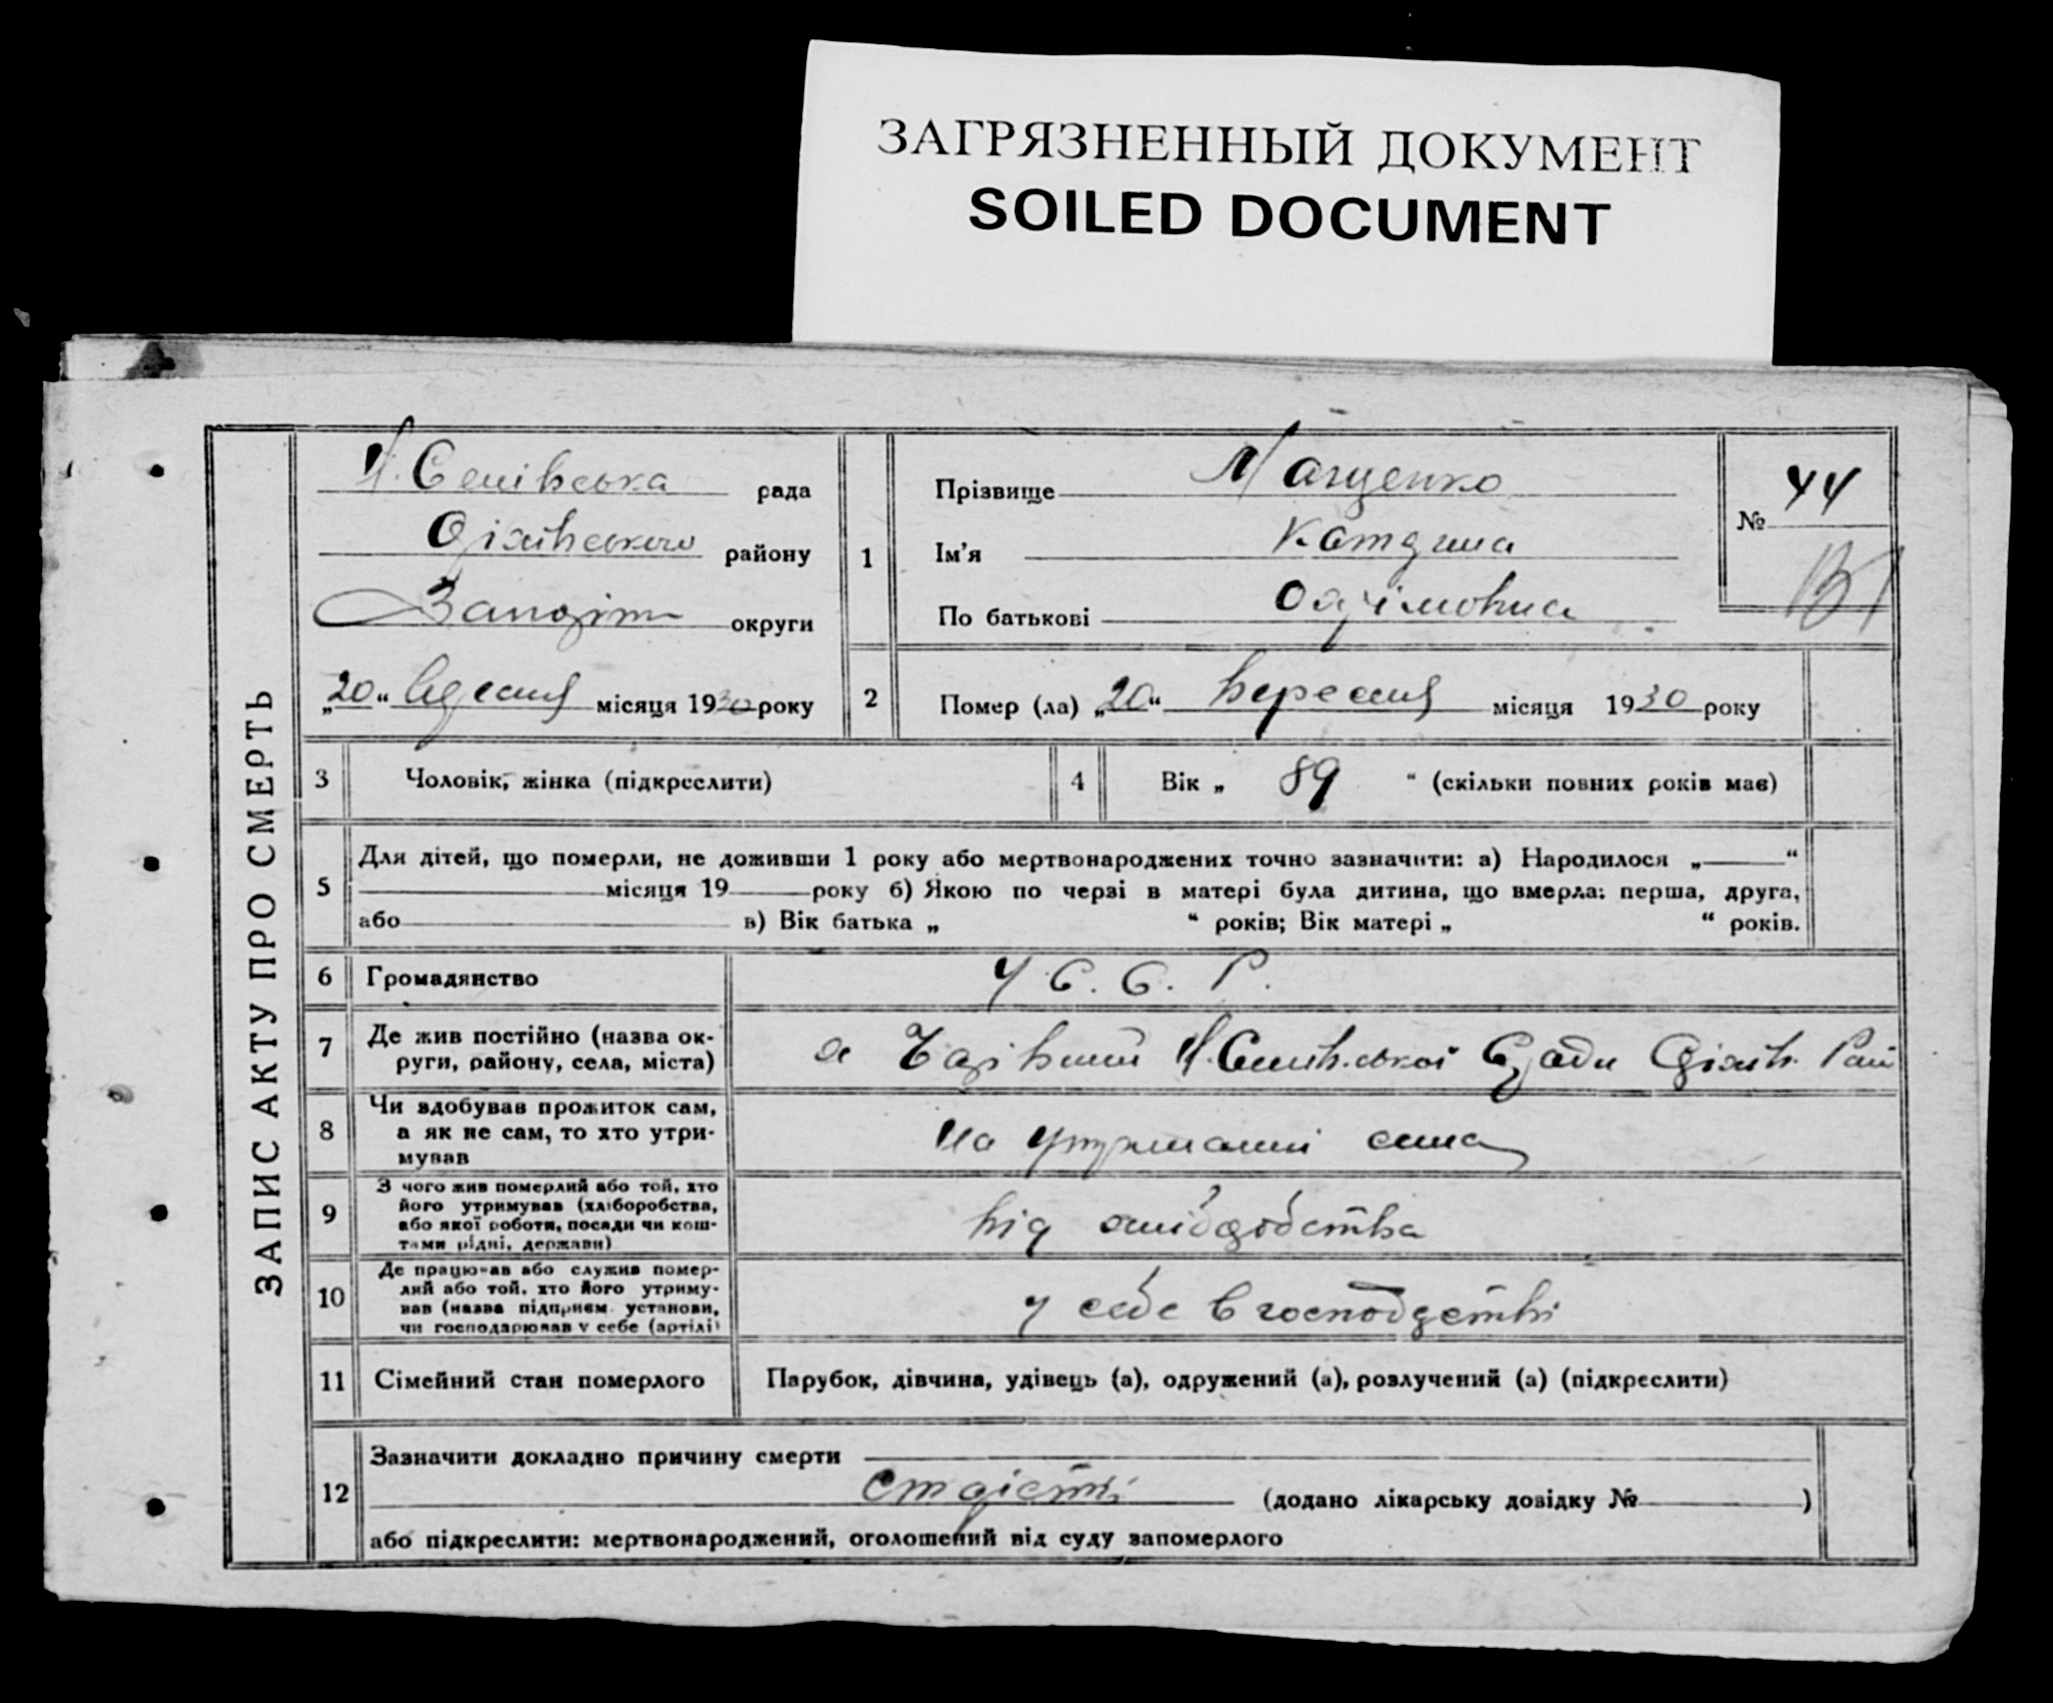 ЗАГРЯЗНЕННЫЙ ДОКУМЕНТ
SOILED DOCUMENT
ЗАПИС АКТУ ПРО СМЕРТЬ
рада
району
округи
„20“ місяця 1930 року
1
Прізвище
Ім'я Катрина
По батькові
№ 44
2
Помер (ла) „20“ вересня місяця 1930 року
3 Чоловік, жінка (підкреслити)
4 Вік „ 89 “ (скільки повних років має)
5
Для дітей, що померли, не доживши 1 року або мертвонароджених точно зазначити: а) Народилося „ “
місяця 19 року б) Якою по черзі в матері була дитина, що вмерла: перша, друга,
або в) Вік батька „ “ років; Вік матері „ “ років.
6 Громадянство У.С.С.Р.
7 Де жив постійно (назва ок-
руги, району, села, міста)
8 Чи здобував прожиток сам,
а як не сам, то хто утри-
мував
на утриманні сина
9 З чого жив померлий або той, хто
його утримував (хліборобства,
або якої роботи, посади чи кош-
тами рідні, держави)
від хліборобства
10 Де працював або служив помер-
лий або той, хто його утриму-
вав (назва підприєм. установи,
чи господарював у себе (артілі)
у себе в господарстві
11 Сімейний стан померлого
Парубок, дівчина, удівець (а), одружений (а), розлучений (а) (підкреслити)
12
Зазначити докладно причину смерти
(додано лікарську довідку № )
або підкреслити: мертвонароджений, оголошений від суду запомерлого